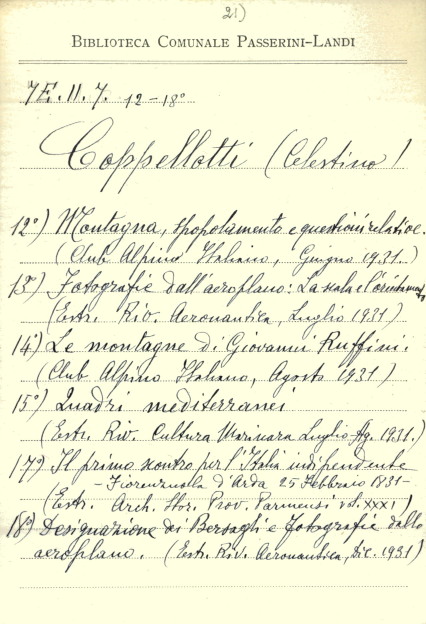 21)
BIBLIOTECA COMUNALE PASSERINI-LANDI
7E. II. 7. 12-18°
Coppellotti (Celestino)
12°) Montagna, spopolamento e questioni relative.
(Club Alpino Italiano, Giugno 1931.)
13°) Fotografie dall'aeroplano: La scala e l'orientam.
(Estr. Riv. Aeronautica, Luglio 1931)
14°) Le montagne di Giovanni Ruffini.
(Club Alpino Italiano, Agosto 1931)
15°) Quadri mediterranei
(Estr. Riv. Cultura Marinara Luglio-Ag. 1931.)
17°) Il primo scontro per l'Italia indipendente
- Fiorenzuola d'Arda 25 Febbraio 1831 -
(Estr. Arch. Stor. Prov. Parmensi vol. XXXI)
18°) Designazione di Bersagli e fotografie dallo
aeroplano. (Estr. Riv. Aeronautica, Dic. 1931)